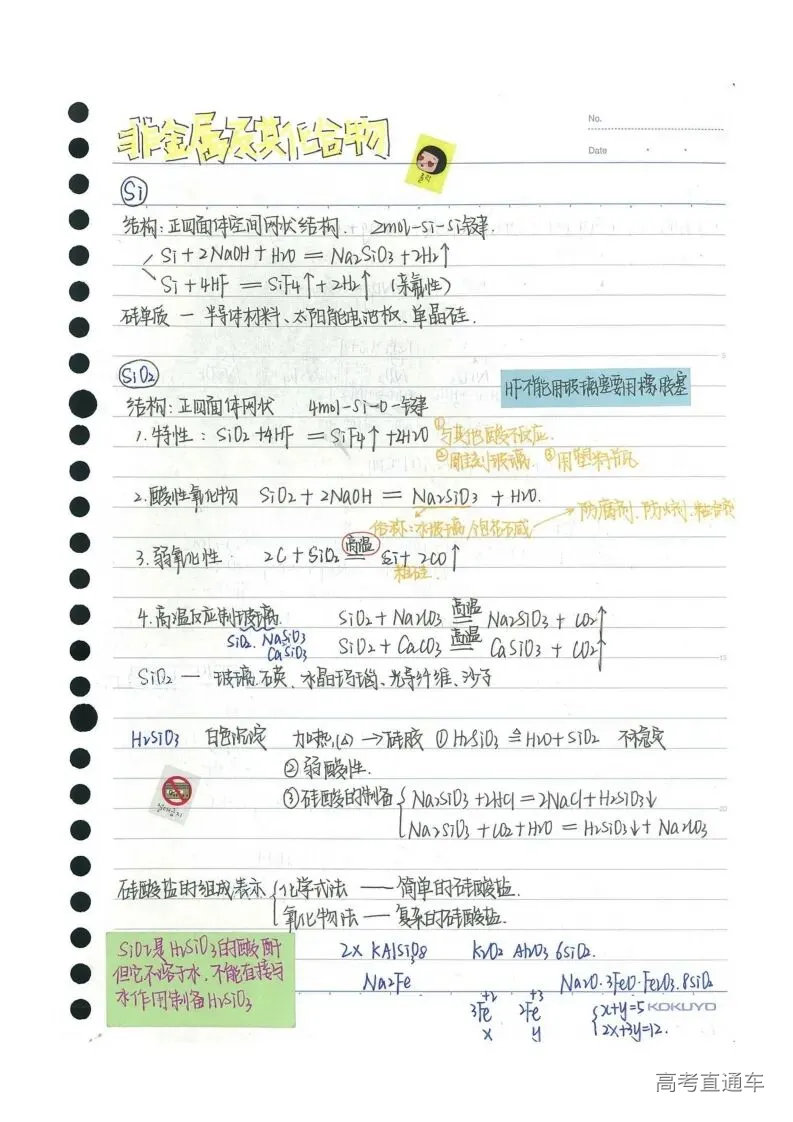 非金属及其化合物
No.
Date
Si
结构:正四面体空间网状结构. 2mol-Si-Si键.
Si+2NaOH+H2O = Na2SiO3+2H2↑
Si+4HF = SiF4↑+2H2↑ (亲氟性)
硅单质 — 半导体材料、太阳能电池板、单晶硅.
SiO2
HF不能用玻璃塞要用橡胶塞
结构:正四面体网状 4mol-Si-O-键
1.特性:SiO2+4HF = SiF4↑+2H2O ①与其他酸不反应.
②雕刻玻璃. ③用塑料瓶
2.酸性氧化物 SiO2+2NaOH = Na2SiO3+H2O.
俗称:水玻璃/泡花碱 → 防腐剂.防火剂.粘合剂
3.弱氧化性. 2C+SiO2 =高温= Si+2CO↑
粗硅.
4.高温反应制玻璃. SiO2+Na2CO3 =高温= Na2SiO3+CO2↑
SiO2. NaSiO3
CaSiO3
SiO2+CaCO3 =高温= CaSiO3+CO2↑
SiO2 — 玻璃.石英、水晶玛瑙、光导纤维、沙子
H2SiO3 白色沉淀 加热(△) → 硅胶 ①H2SiO3 ≙ H2O+SiO2 不稳定
②弱酸性.
③硅酸的制备 Na2SiO3+2HCl=2NaCl+H2SiO3↓
Na2SiO3+CO2+H2O = H2SiO3↓+Na2CO3
硅酸盐的组成表示 化学式法 — 简单的硅酸盐.
氧化物法 — 复杂的硅酸盐.
SiO2是H2SiO3的酸酐
但它不溶于水.不能直接与
水作用制备H2SiO3
2x KAlSi3O8 K2O Al2O3 6SiO2.
Na2Fe Na2O·3FeO·Fe2O3·8SiO2
+2 +3
3Fe 2Fe x+y=5
x y 2x+3y=12.
KOKUYO
高考直通车